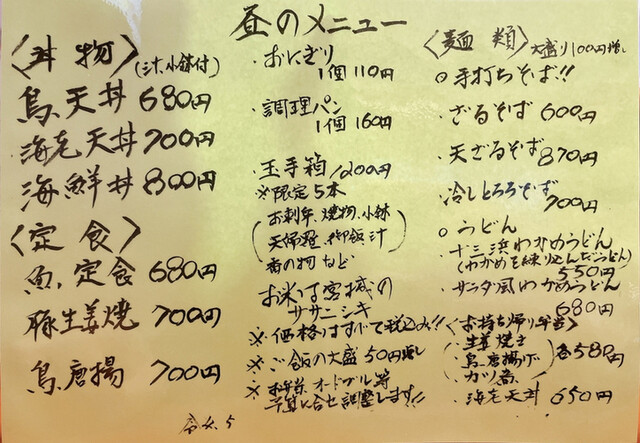 昼のメニュー
〈丼物〉(汁、小鉢付)
鳥天丼 680円
海老天丼 700円
海鮮丼 800円
〈定食〉
魚、定食 680円
豚生姜焼 700円
鳥唐揚 700円
・おにぎり
1個 110円
・調理パン
1個 160円
・玉手箱 1200円
※限定5本
お刺身、焼物、小鉢
天婦羅、御飯、汁
香の物など
お米は宮城の
ササニシキ
※価格はすべて税込み!!
※ご飯の大盛50円増し
※お弁当オードブル等
予算に合せ調整します!!
〈麺類〉大盛り100円増し
○手打ちそば!!
・ざるそば 600円
・天ざるそば 870円
・冷しとろろそば
700円
○うどん
・十三浜わかめうどん
(わかめを練り込んだうどん)
550円
・サンタ風わかめうどん
680円
〈お持ち帰り弁当〉
・生姜焼き
・鳥唐揚げ
・カツ 各580円
・海老天丼 650円